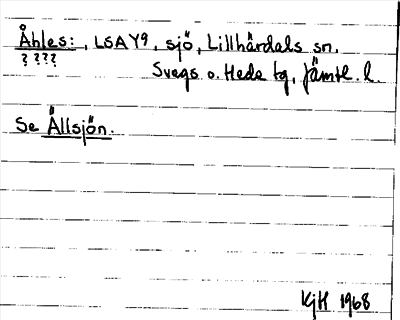 Åhles:, LSAY9, sjö, Lillhärdals sn.
???? Svegs o. Hede tg, Jämtl. l.
Se Ållsjön.
KjH 1968